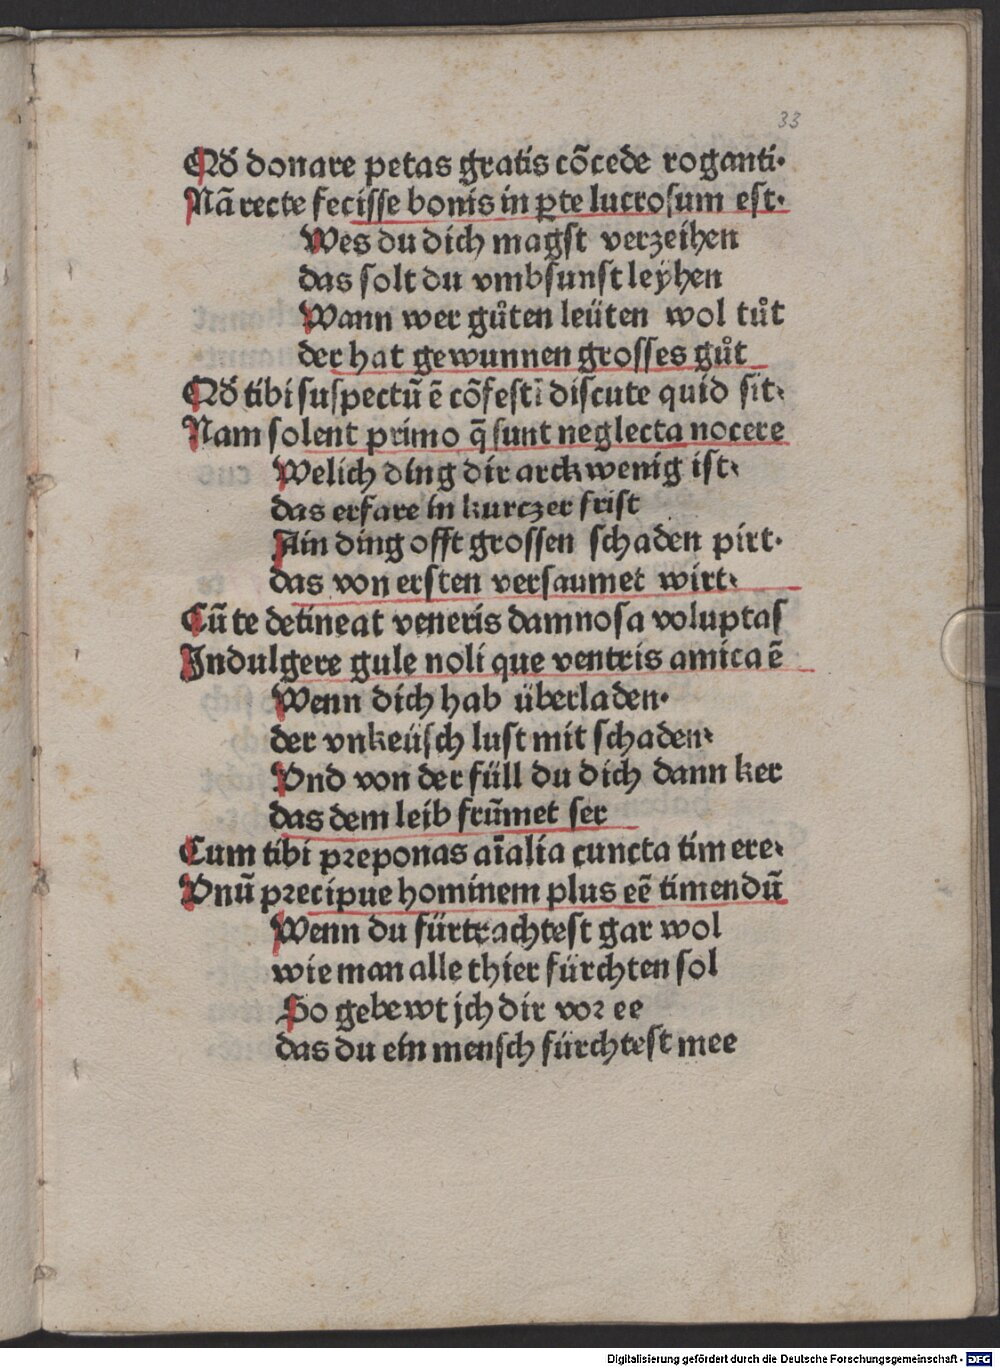 33
Qđ donare petas gratis cōcede roganti·
Nā recte fecisse bonis in ꝑte lucrosum est·
Wes du dich magst verzeihen
das solt du vmbsunst leyhen
Wann wer gůten leüten wol tůt
der hat gewunnen grosses gůt
Qđ tibi suspectū ē cōfestī discute quid sit·
Nam solent primo q̄ sunt neglecta nocere
Welich ding dir arckwenig ist·
das erfare in kurczer frist
Ain ding offt grossen schaden pirt·
das von ersten versaumet wirt·
Cū te detineat veneris damnosa voluptas
Indulgere gule noli que ventris amica ē
Wenn dich hab überladen·
der vnkeüsch lust mit schaden·
Vnd von der füll du dich dann ker
das dem leib frūmet ser
Cum tibi preponas aīalia cuncta timere·
Vnū precipue hominem plus eē timendū
Wenn du fürtrachtest gar wol
wie man alle thier fürchten sol
So gebewt jch dir vor ee
das du ein mensch fürchtest mee
Digitalisierung gefördert durch die Deutsche Forschungsgemeinschaft - DFG